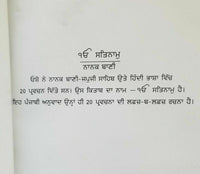 ੴ ਸਤਿਨਾਮੁ
ਨਾਨਕ ਬਾਣੀ
ਓਸ਼ੋ ਨੇ ਨਾਨਕ ਬਾਣੀ-ਜਪੁਜੀ ਸਾਹਿਬ ਉੱਤੇ ਹਿੰਦੀ ਭਾਸ਼ਾ ਵਿੱਚ
20 ਪ੍ਰਵਚਨ ਦਿੱਤੇ ਸਨ। ਉਸ ਕਿਤਾਬ ਦਾ ਨਾਮ – ੴ ਸਤਿਨਾਮੁ ਹੈ।
ਇਹ ਪੰਜਾਬੀ ਅਨੁਵਾਦ ਉਨ੍ਹਾਂ ਹੀ 20 ਪ੍ਰਵਚਨਾਂ ਦੀ ਲਫ਼ਜ਼-ਬ-ਲਫ਼ਜ਼ ਰਚਨਾ ਹੈ।